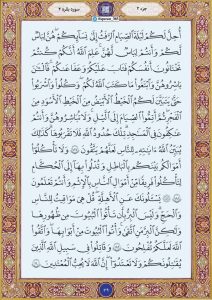 جزء ۲
سوره بقره ۲
أُحِلَّ لَكُمْ لَيْلَةَ الصِّيَامِ الرَّفَثُ إِلَىٰ نِسَائِكُمْ هُنَّ لِبَاسٌ
لَكُمْ وَأَنْتُمْ لِبَاسٌ لَهُنَّ عَلِمَ اللَّهُ أَنَّكُمْ كُنْتُمْ
تَخْتَانُونَ أَنْفُسَكُمْ فَتَابَ عَلَيْكُمْ وَعَفَا عَنْكُمْ فَالْآنَ
بَاشِرُوهُنَّ وَابْتَغُوا مَا كَتَبَ اللَّهُ لَكُمْ وَكُلُوا وَاشْرَبُوا
حَتَّىٰ يَتَبَيَّنَ لَكُمُ الْخَيْطُ الْأَبْيَضُ مِنَ الْخَيْطِ الْأَسْوَدِ مِنَ
الْفَجْرِ ثُمَّ أَتِمُّوا الصِّيَامَ إِلَى اللَّيْلِ وَلَا تُبَاشِرُوهُنَّ وَأَنْتُمْ
عَاكِفُونَ فِي الْمَسَاجِدِ تِلْكَ حُدُودُ اللَّهِ فَلَا تَقْرَبُوهَا كَذَٰلِكَ
يُبَيِّنُ اللَّهُ آيَاتِهِ لِلنَّاسِ لَعَلَّهُمْ يَتَّقُونَ ﴿۱۸۷﴾ وَلَا تَأْكُلُوا
أَمْوَالَكُمْ بَيْنَكُمْ بِالْبَاطِلِ وَتُدْلُوا بِهَا إِلَى الْحُكَّامِ
لِتَأْكُلُوا فَرِيقًا مِنْ أَمْوَالِ النَّاسِ بِالْإِثْمِ وَأَنْتُمْ تَعْلَمُونَ
﴿۱۸۸﴾ يَسْأَلُونَكَ عَنِ الْأَهِلَّةِ قُلْ هِيَ مَوَاقِيتُ لِلنَّاسِ
وَالْحَجِّ وَلَيْسَ الْبِرُّ بِأَنْ تَأْتُوا الْبُيُوتَ مِنْ ظُهُورِهَا
وَلَٰكِنَّ الْبِرَّ مَنِ اتَّقَىٰ وَأْتُوا الْبُيُوتَ مِنْ أَبْوَابِهَا وَاتَّقُوا
اللَّهَ لَعَلَّكُمْ تُفْلِحُونَ ﴿۱۸۹﴾ وَقَاتِلُوا فِي سَبِيلِ اللَّهِ الَّذِينَ
يُقَاتِلُونَكُمْ وَلَا تَعْتَدُوا إِنَّ اللَّهَ لَا يُحِبُّ الْمُعْتَدِينَ ﴿۱۹۰﴾
۲۹